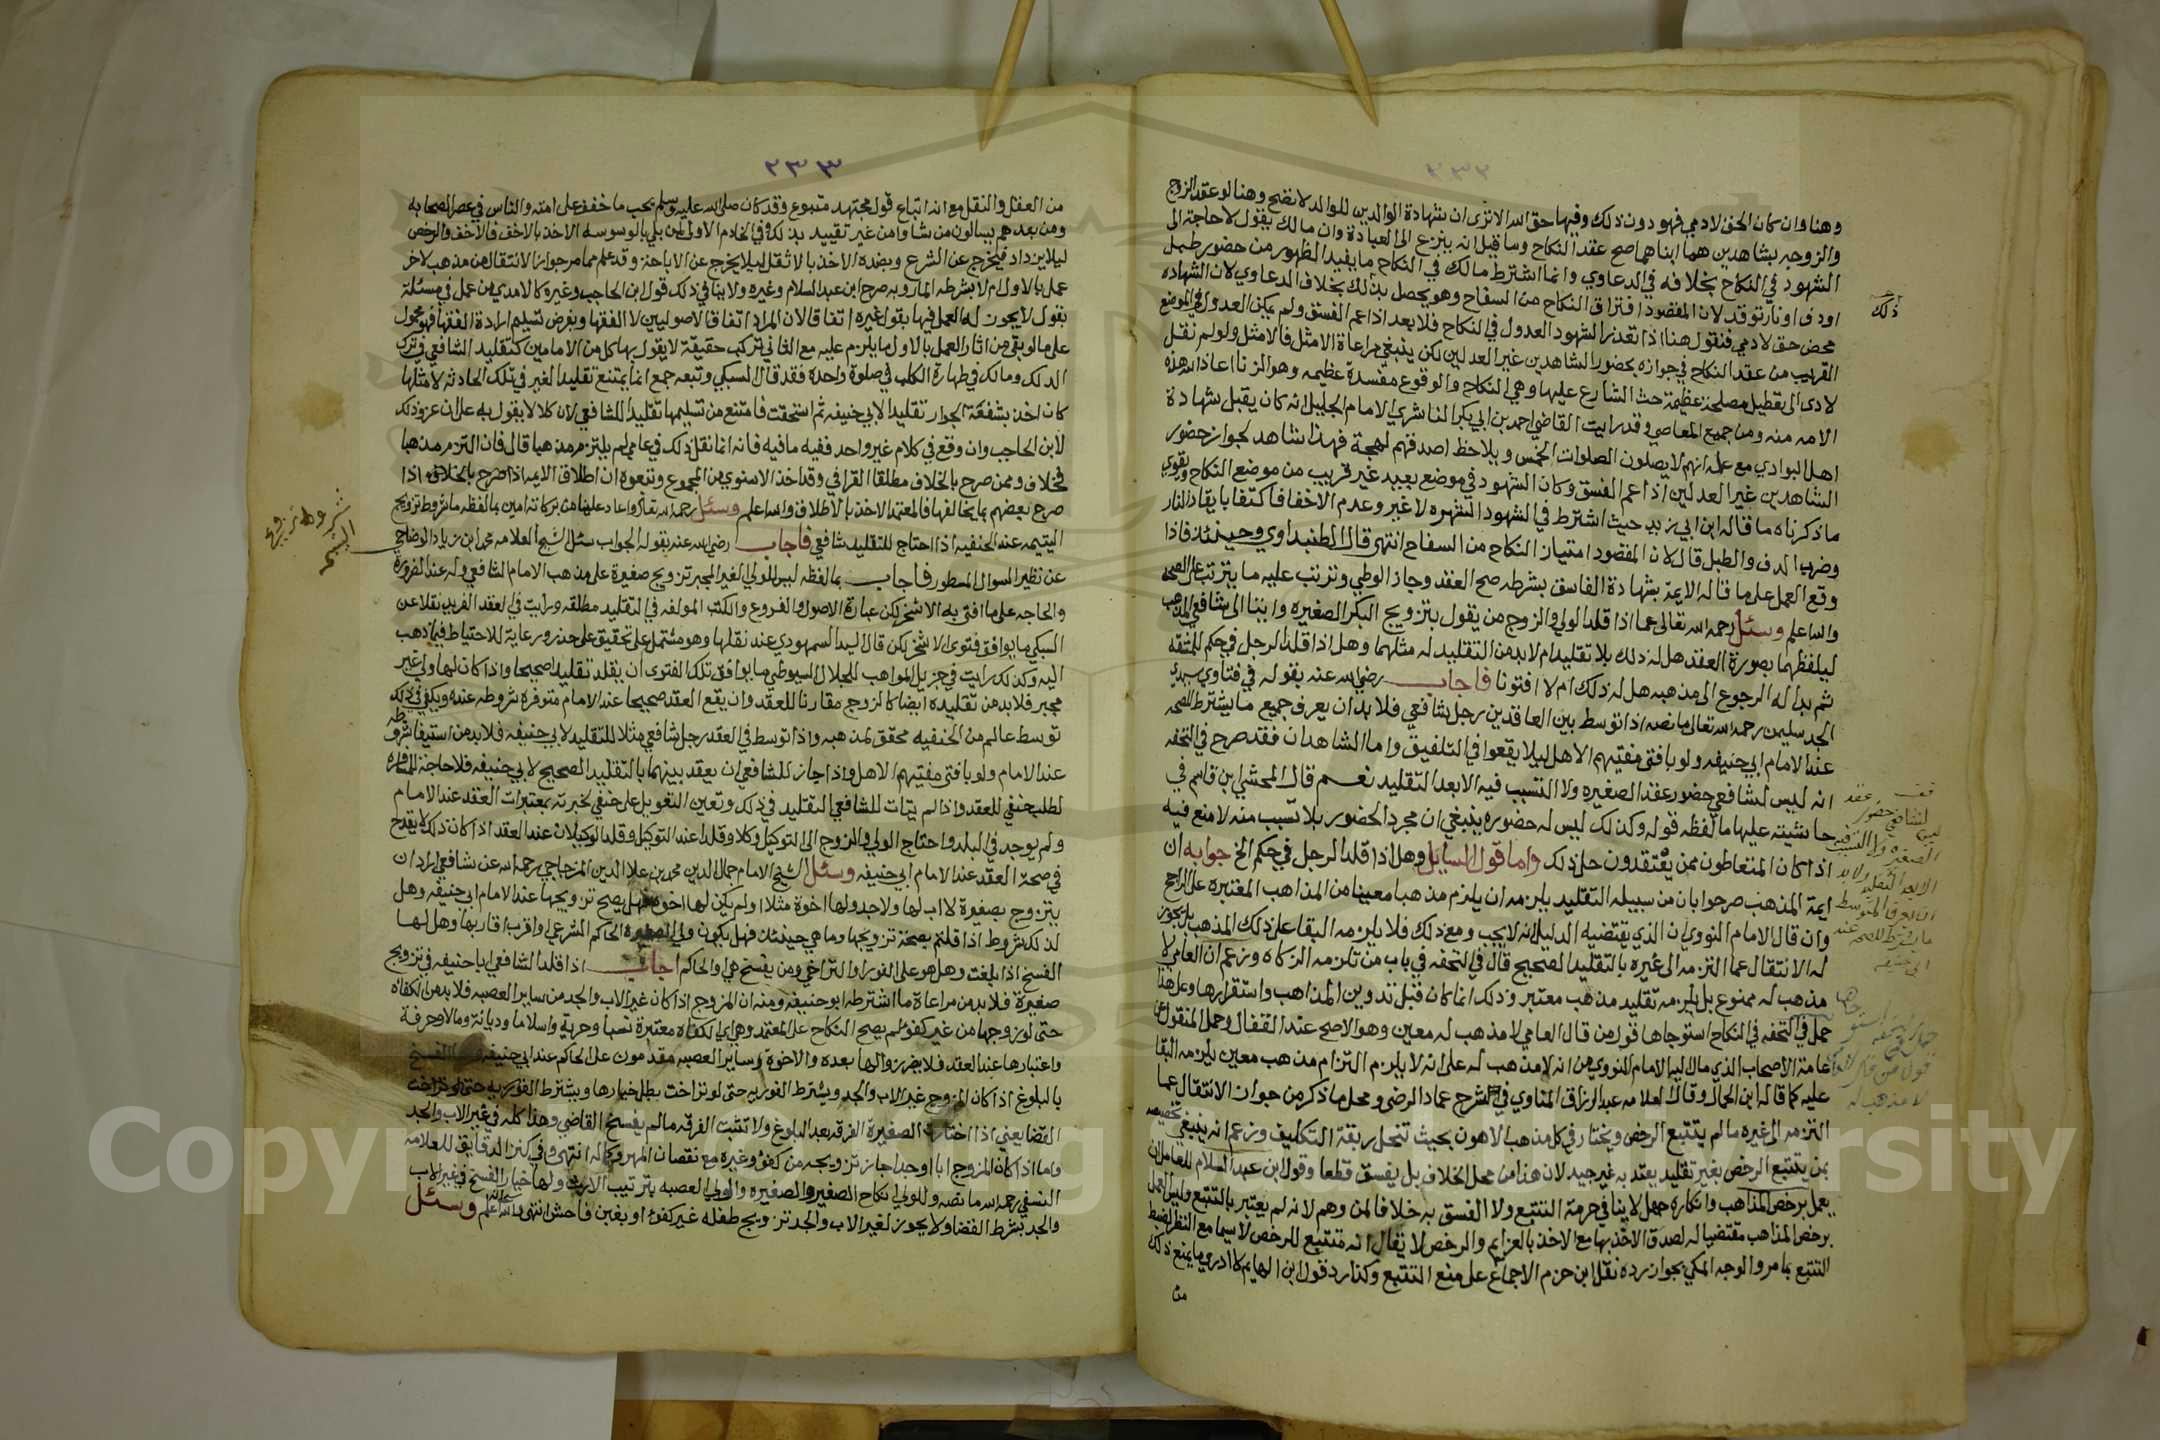 ٢٣٢
وهنا وان كان الحق لادمي فهو دون ذلك وفيها حق الله الا ترى ان شهادة الوالدين للوالد لا تصح وهنا لو عقد الزوج
والزوجه بشاهدين هما ابناهما صح عقد النكاح وما قيل انه ينزع الى العبادة وان مالك يقول لا حاجة الى
الشهود في النكاح بخلافه في الدعاوي وانما اشترط مالك في النكاح ما يفيد الظهور من حضور طبل
او دف او نار توقد لان المقصود افتراق النكاح من السفاح وهو يحصل بذلك بخلاف الدعاوي لان الشهاده
محض حق لادمي فنقول هنا اذا تعذر الشهود العدول في النكاح فلا بعد اذا عم الفسق ولم يمكن العدول في الموضع
القريب من عقد النكاح في جوازه بحضور الشاهدين غير العدلين لكن ينبغي مراعاة الامثل فالامثل ولو لم نقل
لادى الى تعطيل مصلحة عظيمة حث الشارع عليها وهي النكاح والوقوع مفسدة عظيمه وهو الزنا اعاذ الله هذه
الامه منه ومن جميع المعاصي وقد رايت القاضي احمد بن ابي بكر الناشري الامام الجليل انه كان يقبل شهادة
اهل البوادي مع علمه انهم لا يصلون الصلوات الخمس ويلاحظ اصدقهم لهجة فهذا شاهد لجواز حضور
الشاهدين غير العدلين اذا عم الفسق وكان الشهود في موضع بعيد غير قريب من موضع النكاح ويقوي
ما ذكرناه ما قاله ابن ابي زيد حيث اشترط في الشهود الشهره لا غير وعدم الاخفا فاكتفا بايقاد النار
وضرب الدف والطبل قال لان المقصود امتياز النكاح من السفاح انتهى قال الطنبداوي وحينئذ فاذا
وقع العمل على ما قاله الايمة بشهادة الفاسق بشرطه صح العقد وجاز الوطي وترتب عليه ما يترتب على الصحه
والله اعلم وسئل رحمه الله تعالى عما اذا قلد الولي والزوج من يقول بتزويج البكر الصغيره واتيا الى شافعي المذهب
ليلفظهما بصورة العقد هل له ذلك بلا تقليد ام لابد من التقليد له مثلهما وهل اذا قلد الرجل في حكم للمشقه
ثم بدا له الرجوع الى مذهبه هل له ذلك ام لا افتونا فاجاب رضي الله عنه بقوله في فتاوي سيدي
الجد سليمن رحمه الله تعالى ما نصه اذا توسط بين العاقدين رجل شافعي فلابد ان يعرف جميع ما يشترط لصحه
عند الامام ابي حنيفه ولو بافتى مفتيهم الاهل ليلا يقعوا في التلفيق واما الشاهدان فقد صرح في التحفه
انه ليس لشافعي حضور عقد الصغيره ولا التسبب فيه الا بعد التقليد نعم قال المحشي ابن قاسم في
حاشيته عليها ما لفظه قوله وكذلك ليس له حضوره ينبغي ان مجرد الحضور بلا تسبب منه لا منع فيه
اذا كان المتعاطون ممن يعتقدون حل ذلك واما قول السايل وهل اذا قلد الرجل في حكم الخ جوابه ان
ايمة المذهب صرحوا بان من سبيله التقليد يلزمه ان يلزم مذهبا معينا من المذاهب المعتبره على الراجح
وان قال الامام النووي ان الذي يقتضيه الدليل انه لا يجب ومع ذلك فلا يلزمه البقا على ذلك المذهب بل يجوز
له الانتقال عما التزمه الى غيره بالتقليد الصحيح قال في التحفه في باب من تلزمه الزكاه وزعم ان العامي لا
مذهب له ممنوع بل يلزمه تقليد مذهب معتبر وذلك انما كان قبل تدوين المذاهب واستقرارها وعلى هذا
حمل في التحفه في النكاح استوجاها قول من قال العامي لا مذهب له معين وهو الاصح عند القفال وحمل المنقول عن
عامة الاصحاب الذي مال اليه الامام النووي من انه لا مذهب له على انه لا يلزم التزام مذهب معين يلزمه البقا
عليه كما قاله ابن الجمال وقال العلامه عبد الرزاق المناوي في شرح عماد الرضي ومحل ما ذكر من جواز الانتقال عما
التزمه الى غيره ما لم يتتبع الرخص ويختار في كل مذهب الاهون بحيث تنحل ربقة التكليف وزعم انه ينبغي تخصيصه
بمن يتتبع الرخص بغير تقليد يعتد به غير جيد لان هذا من محل الخلاف بل يفسق قطعا وقول ابن عبد السلام للعامل ان
يعمل برخص المذاهب وانكاره جهل لا ينافي حرمة التتبع ولا الفسق به خلافا لمن وهم لانه لم يعتبر بالتتبع وليس العمل
برخص المذاهب مقتضيا له لصدق الاخذ بها مع الاخذ بالعزايم والرخص لا يقال انه متتبع للرخص لاسيما مع النظر لضبط
التتبع بما مر والوجه المكي بجواز رده نقل ابن حزم الاجماع على منع التتبع وكذا رد قول ابن الهمام لا ادري ما يمنع ذلك
من
ذلك
قف
ليس لشافعي حضور عقد
الصغيره ولا التسبب فيه
الا بعد التقليد ولابد
ان يعرف المتوسط
ما يشترط للصحه عند
ابي حنيفه
٢٣٣
من العقل والنقل مع انه اتباع قول مجتهد متبوع وقد كان صلى الله عليه وسلم يحب ما خفف على امته والناس في عصر الصحابه
ومن بعدهم يسالون من شاوا من غير تقييد بذلك وفي الخادم الاولى لمن بلي بالوسوسه الاخذ بالاخف فالاخف والرخص
ليلا يزداد فيخرج عن الشرع وبضده الاخذ بالاثقل ليلا يخرج عن الاباحة وقد علم مما مر جواز الانتقال من مذهب لاخر
عمل بالاول ام لا بشرطه المار وبه صرح ابن عبد السلام وغيره ولا ينافي ذلك قول ابن الحاجب وغيره كالامدي من عمل في مسئلة
بقول لا يجوز له العمل فيها بقول غيره اتفاقا لان المراد اتفاق الاصوليين لا الفقها وبفرض تسليم ارادة الفقها فهو محمول
على ما لو بقي من اثار العمل بالاول ما يلزم عليه مع الثاني تركيب حقيقة لا يقول بها كل من الامامين كتقليد الشافعي في ترك
الدلك ومالك في طهارة الكلب في صلوة واحدة فقد قال السبكي وتبعه جمع انما يمتنع تقليد الغير في تلك الحادثه لا مثلها
كان اخذ بشفعة الجوار تقليدا لابي حنيفه ثم استحقت فامتنع من تسليمها تقليدا للشافعي لان كلا لا يقول به على ان عزو ذلك
لابن الحاجب وان وقع في كلام غير واحد ففيه ما فيه فانه انما نقل ذلك في عامي لم يلتزم مذهبا قال فان التزم مذهبا
فخلاف وممن صرح بالخلاف مطلقا القرافي وقد اخذ الاسنوي من المجموع وتبعوه ان اطلاق الايمه اذا صرح بالخلاف اذا
صرح بعضهم بما يخالفها فالمعتمد الاخذ بالاطلاق والله اعلم وسئل رحمه الله تعالى واعاد علينا من بركاته امين بما لفظه ما شروط تزويج
اليتيمه عند الحنفيه اذا احتاج للتقليد شافعي فاجاب رضي الله عنه بقوله الجواب سئل الشيخ العلامه محمد ابن زياد الوضاحي
عن نظير السوال المسطور فاجاب بما لفظه ليس للولي الغير المجبر تزويج صغيرة على مذهب الامام الشافعي وله عند الضرورة
والحاجه على ما افتى به الاشخر لكن عبارة الاصول والفروع والكتب المولفه في التقليد مطلقه ورايت في العقد الفريد نقلا عن
السبكي ما يوافق فتوى الاشخر لكن قال السيد السمهودي عند نقلها وهو مشتمل على تحقيق على حذر ورعاية للاحتياط فيما ذهب
اليه وكذلك رايت في جزيل المواهب للجلال السيوطي ما يوافق تلك الفتوى ان يقلد تقليدا صحيحا واذا كان لها ولي غير
مجبر فلابد من تقليده ايضا كالزوج مقارنا للعقد وان يقع العقد صحيحا عند الامام متوفرة شروطه عنده ويكفي في ذلك
توسط عالم من الحنفيه محقق لمذهبه واذا توسط في العقد رجل شافعي مثلا للتقليد لابي حنيفه فلابد من استيفا شروطه
عند الامام ولو بافتى مفتيهم الاهل واذا جاز للشافعي ان يعقد بينهما بالتقليد الصحيح لابي حنيفه فلا حاجة للمسافره
لطلب حنفي للعقد واذا لم يتات للشافعي التقليد في ذلك وتعين التعويل على حنفي لخبرته بمعتبرات العقد عند الامام
ولم يوجد في البلد واحتاج الولي والزوج الى التوكيل وكلا وقلدا عند التوكيل وقلد الوكيلان عند العقد اذا كان ذلك لا يقدح
في صحة العقد عند الامام ابي حنيفه وسئل الشيخ الامام جمال الدين محمد بن علا الدين المزجاجي رحمه الله عن شافعي اراد ان
يتزوج بصغيرة لا اب لها ولا جد ولها اخوة مثلا او لم يكن لها اخوة فهل يصح تزويجها عند الامام ابي حنيفه وهل
لذلك شروط اذا قلتم بصحة تزويجها وما هي حينئذ فهل يكون ولي الصغيره الحاكم الشرعي او اقرب اقاربها وهل لها
الفسخ اذا بلغت وهل هو على الفور او التراخي ومن يفسخ هي او الحاكم اجاب اذا قلد الشافعي ابا حنيفه في تزويج
صغيرة فلابد من مراعاة ما اشترطه ابو حنيفه ومنه ان المزوج اذا كان غير الاب والجد من ساير العصبه فلابد من الكفاه
حتى لو زوجها من غير كفو لم يصح النكاح على المعتمد وهي اي الكفاه معتبرة نسبا وحرية واسلاما وديانة ومالا وحرفة
واعتبارها عند العقد فلا يضر زوالها بعده والاخوة وساير العصبه مقدمون على الحاكم عند ابي حنيفه الفسخ
بالبلوغ اذا كان المزوج غير الاب والجد ويشترط الفور به حتى لو تراخت بطل خيارها ويشترط الفور به حتى لو تراخت
القضا يعني اذا اختارت الصغيرة الفرقه بعد البلوغ ولا تثبت الفرقه ما لم يفسخ القاضي وهذا كله في غير الاب والجد
واما اذا كان المزوج ابا او جدا جاز تزويجه من كفو وغيره مع نقصان المهر وكماله انتهى وفي كنز الدقايق للعلامه
النسفي رحمه الله ما نصه وللولي نكاح الصغير والصغيره والولي العصبه بترتيب الارث ولها خيار الفسخ في غير الاب
والجد بشرط القضا ولا يجوز لغير الاب والجد تزويج طفله غير كفو او بغبن فاحش انتهى والله اعلم وسئل
شروط تزويج
اليتيمه